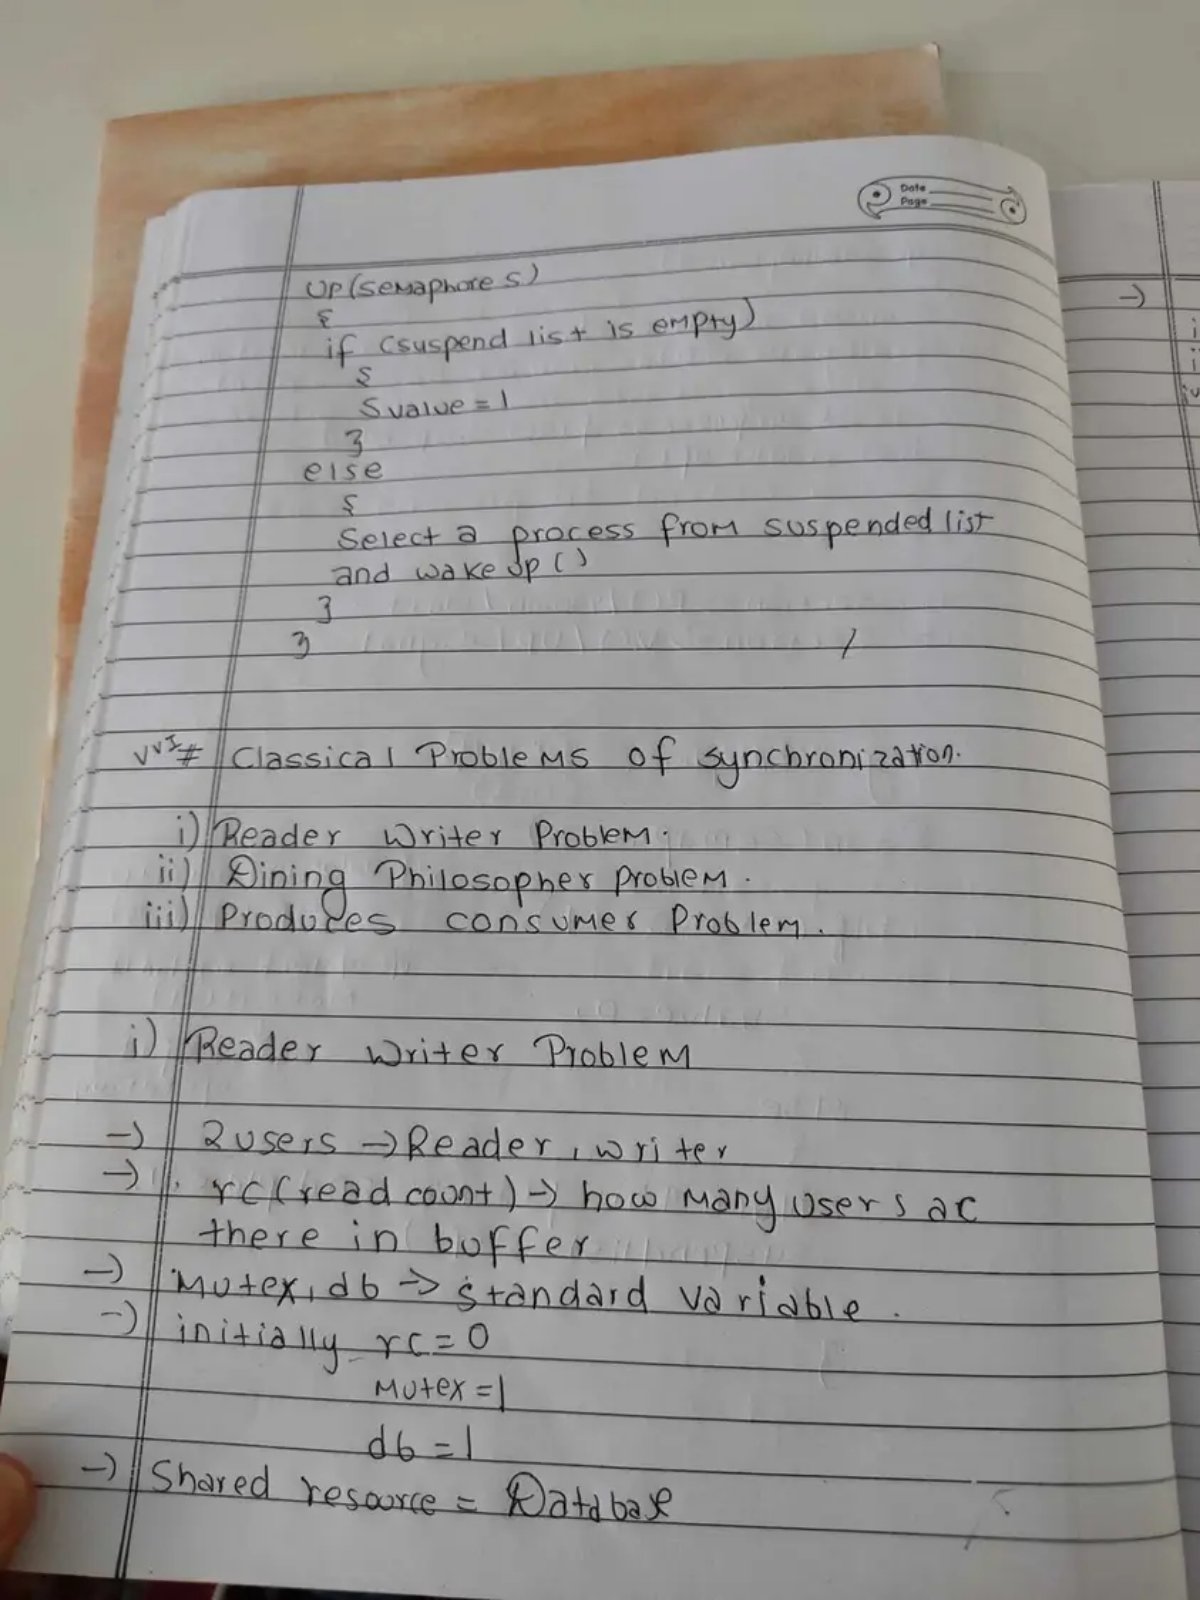 Date
Page
UP(semaphore s)
{
if (suspend list is empty)
{
S value = 1
}
else
{
Select a process from suspended list
and wake up ()
}
}
VVI # Classical Problems of synchronization.
i) Reader Writer Problem.
ii) Dining Philosopher problem.
iii) Produces consumer Problem.
i) Reader Writer Problem
→ 2 users → Reader, writer
→ rc (read count) → how many users ar
there in buffer
→ Mutex, db → standard variable.
→ initially rc = 0
Mutex = 1
db = 1
→ Shared resource = Database
→